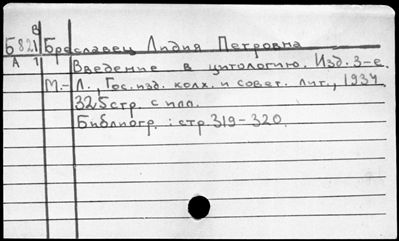 Б821 Бреславец Лидия Петровна
А 1 Введение в цитологию. Изд. 3-е.
М.-Л., Гос. изд. колх. и совет. лит., 1934
325стр. с илл.
Библиогр. : стр. 319-320.